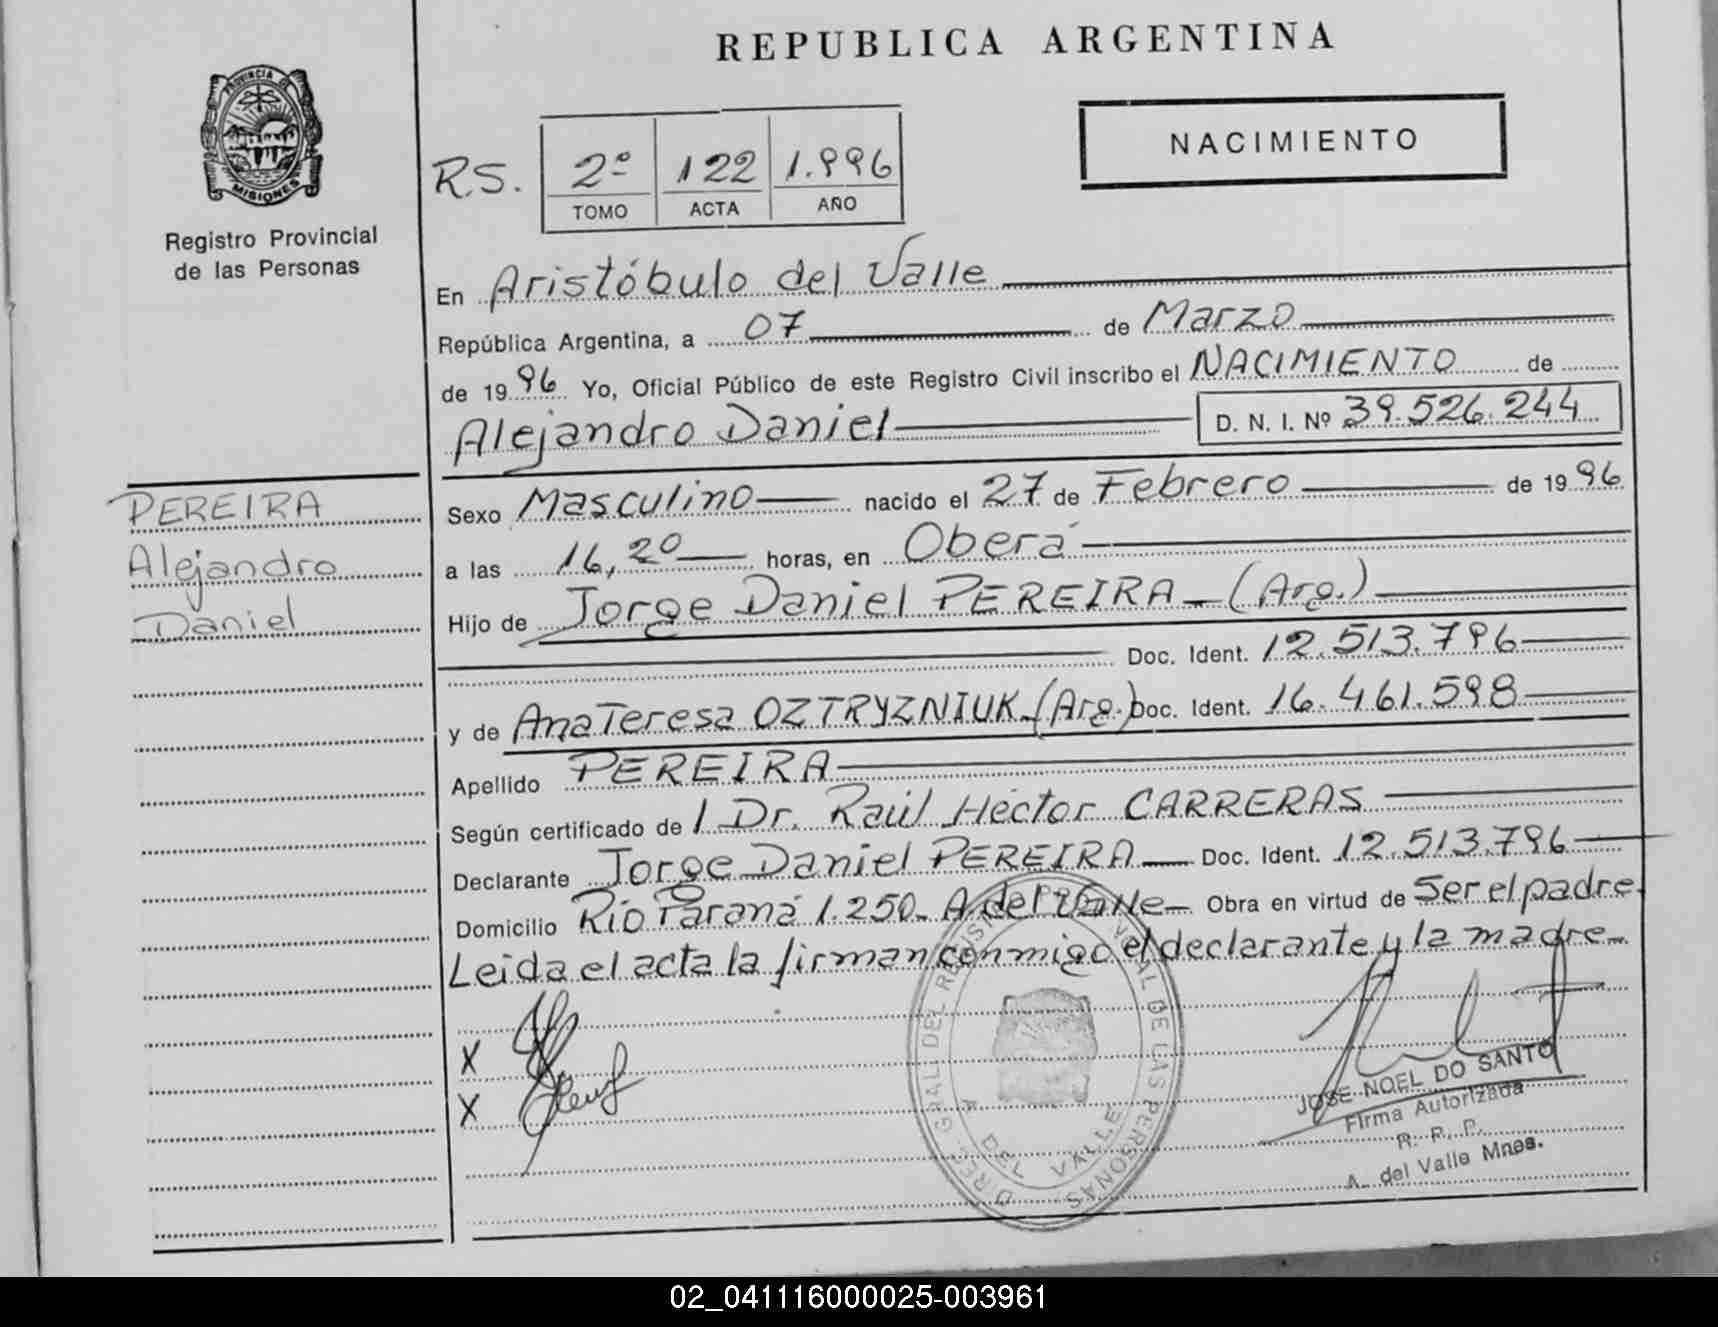 REPUBLICA ARGENTINA
PROVINCIA DE
MISIONES
Registro Provincial
de las Personas
NACIMIENTO
RS. 2º 122 1.996
TOMO ACTA AÑO
En Aristóbulo del Valle
República Argentina, a 07 de Marzo
de 1996 Yo, Oficial Público de este Registro Civil inscribo el NACIMIENTO de
Alejandro Daniel D. N. I. Nº 39.526.244
PEREIRA
Alejandro
Daniel
Sexo Masculino nacido el 27 de Febrero de 1996
a las 16,20 horas, en Oberá
Hijo de Jorge Daniel PEREIRA (Arg.)
Doc. Ident. 12.513.796
y de Ana Teresa OZTRYZNIUK (Arg.) Doc. Ident. 16.461.598
Apellido PEREIRA
Según certificado de l Dr. Raúl Héctor CARRERAS
Declarante Jorge Daniel PEREIRA Doc. Ident. 12.513.796
Domicilio Río Paraná 1.250. A del Valle Obra en virtud de Ser el padre
Leida el acta la firman conmigo el declarante y la madre
X
X
DIREC. GRAL DEL REGISTRO DE LAS PERSONAS
A. DEL VALLE
JOSE NOEL DO SANTO
Firma Autorizada
R. P. P.
A. del Valle Mnes.
02_041116000025-003961